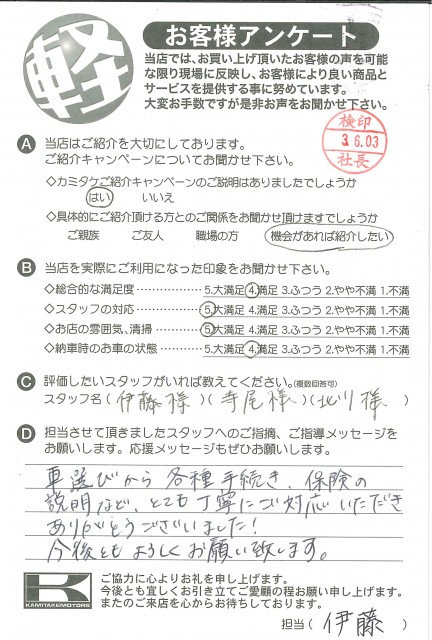 軽
お客様アンケート
当店では、お買い上げ頂いたお客様の声を可能
な限り現場に反映し、お客様により良い商品と
サービスを提供する事に努めています。
大変お手数ですが是非お声をお聞かせ下さい。
検印
3.6.03
社長
A 当店はご紹介を大切にしております。
ご紹介キャンペーンについてお聞かせ下さい。
◇カミタケご紹介キャンペーンのご説明はありましたでしょうか
はい いいえ
◇具体的にご紹介頂ける方とのご関係をお聞かせ頂けますでしょうか
ご親族 ご友人 職場の方 機会があれば紹介したい
B 当店を実際にご利用になった印象をお聞かせ下さい。
◇総合的な満足度 5.大満足 4.満足 3.ふつう 2.やや不満 1.不満
◇スタッフの対応 5.大満足 4.満足 3.ふつう 2.やや不満 1.不満
◇お店の雰囲気、清掃 5.大満足 4.満足 3.ふつう 2.やや不満 1.不満
◇納車時のお車の状態 5.大満足 4.満足 3.ふつう 2.やや不満 1.不満
C 評価したいスタッフがいれば教えてください。(複数回答可)
スタッフ名(伊藤様)(寺尾様)(北川様)
D 担当させて頂きましたスタッフへのご指摘、ご指導メッセージを
お願いします。応援メッセージもぜひお願いします。
車選びから各種手続き、保険の
説明など、とても丁寧にご対応いただき
ありがとうございました!
今後ともよろしくお願い致します。
K
KAMITAKEMOTORS
ご協力に心よりお礼を申し上げます。
今後とも宜しくお引き立てご愛顧の程お願い申し上げます。
またのご来店を心からお待ちしております。
担当(伊藤)